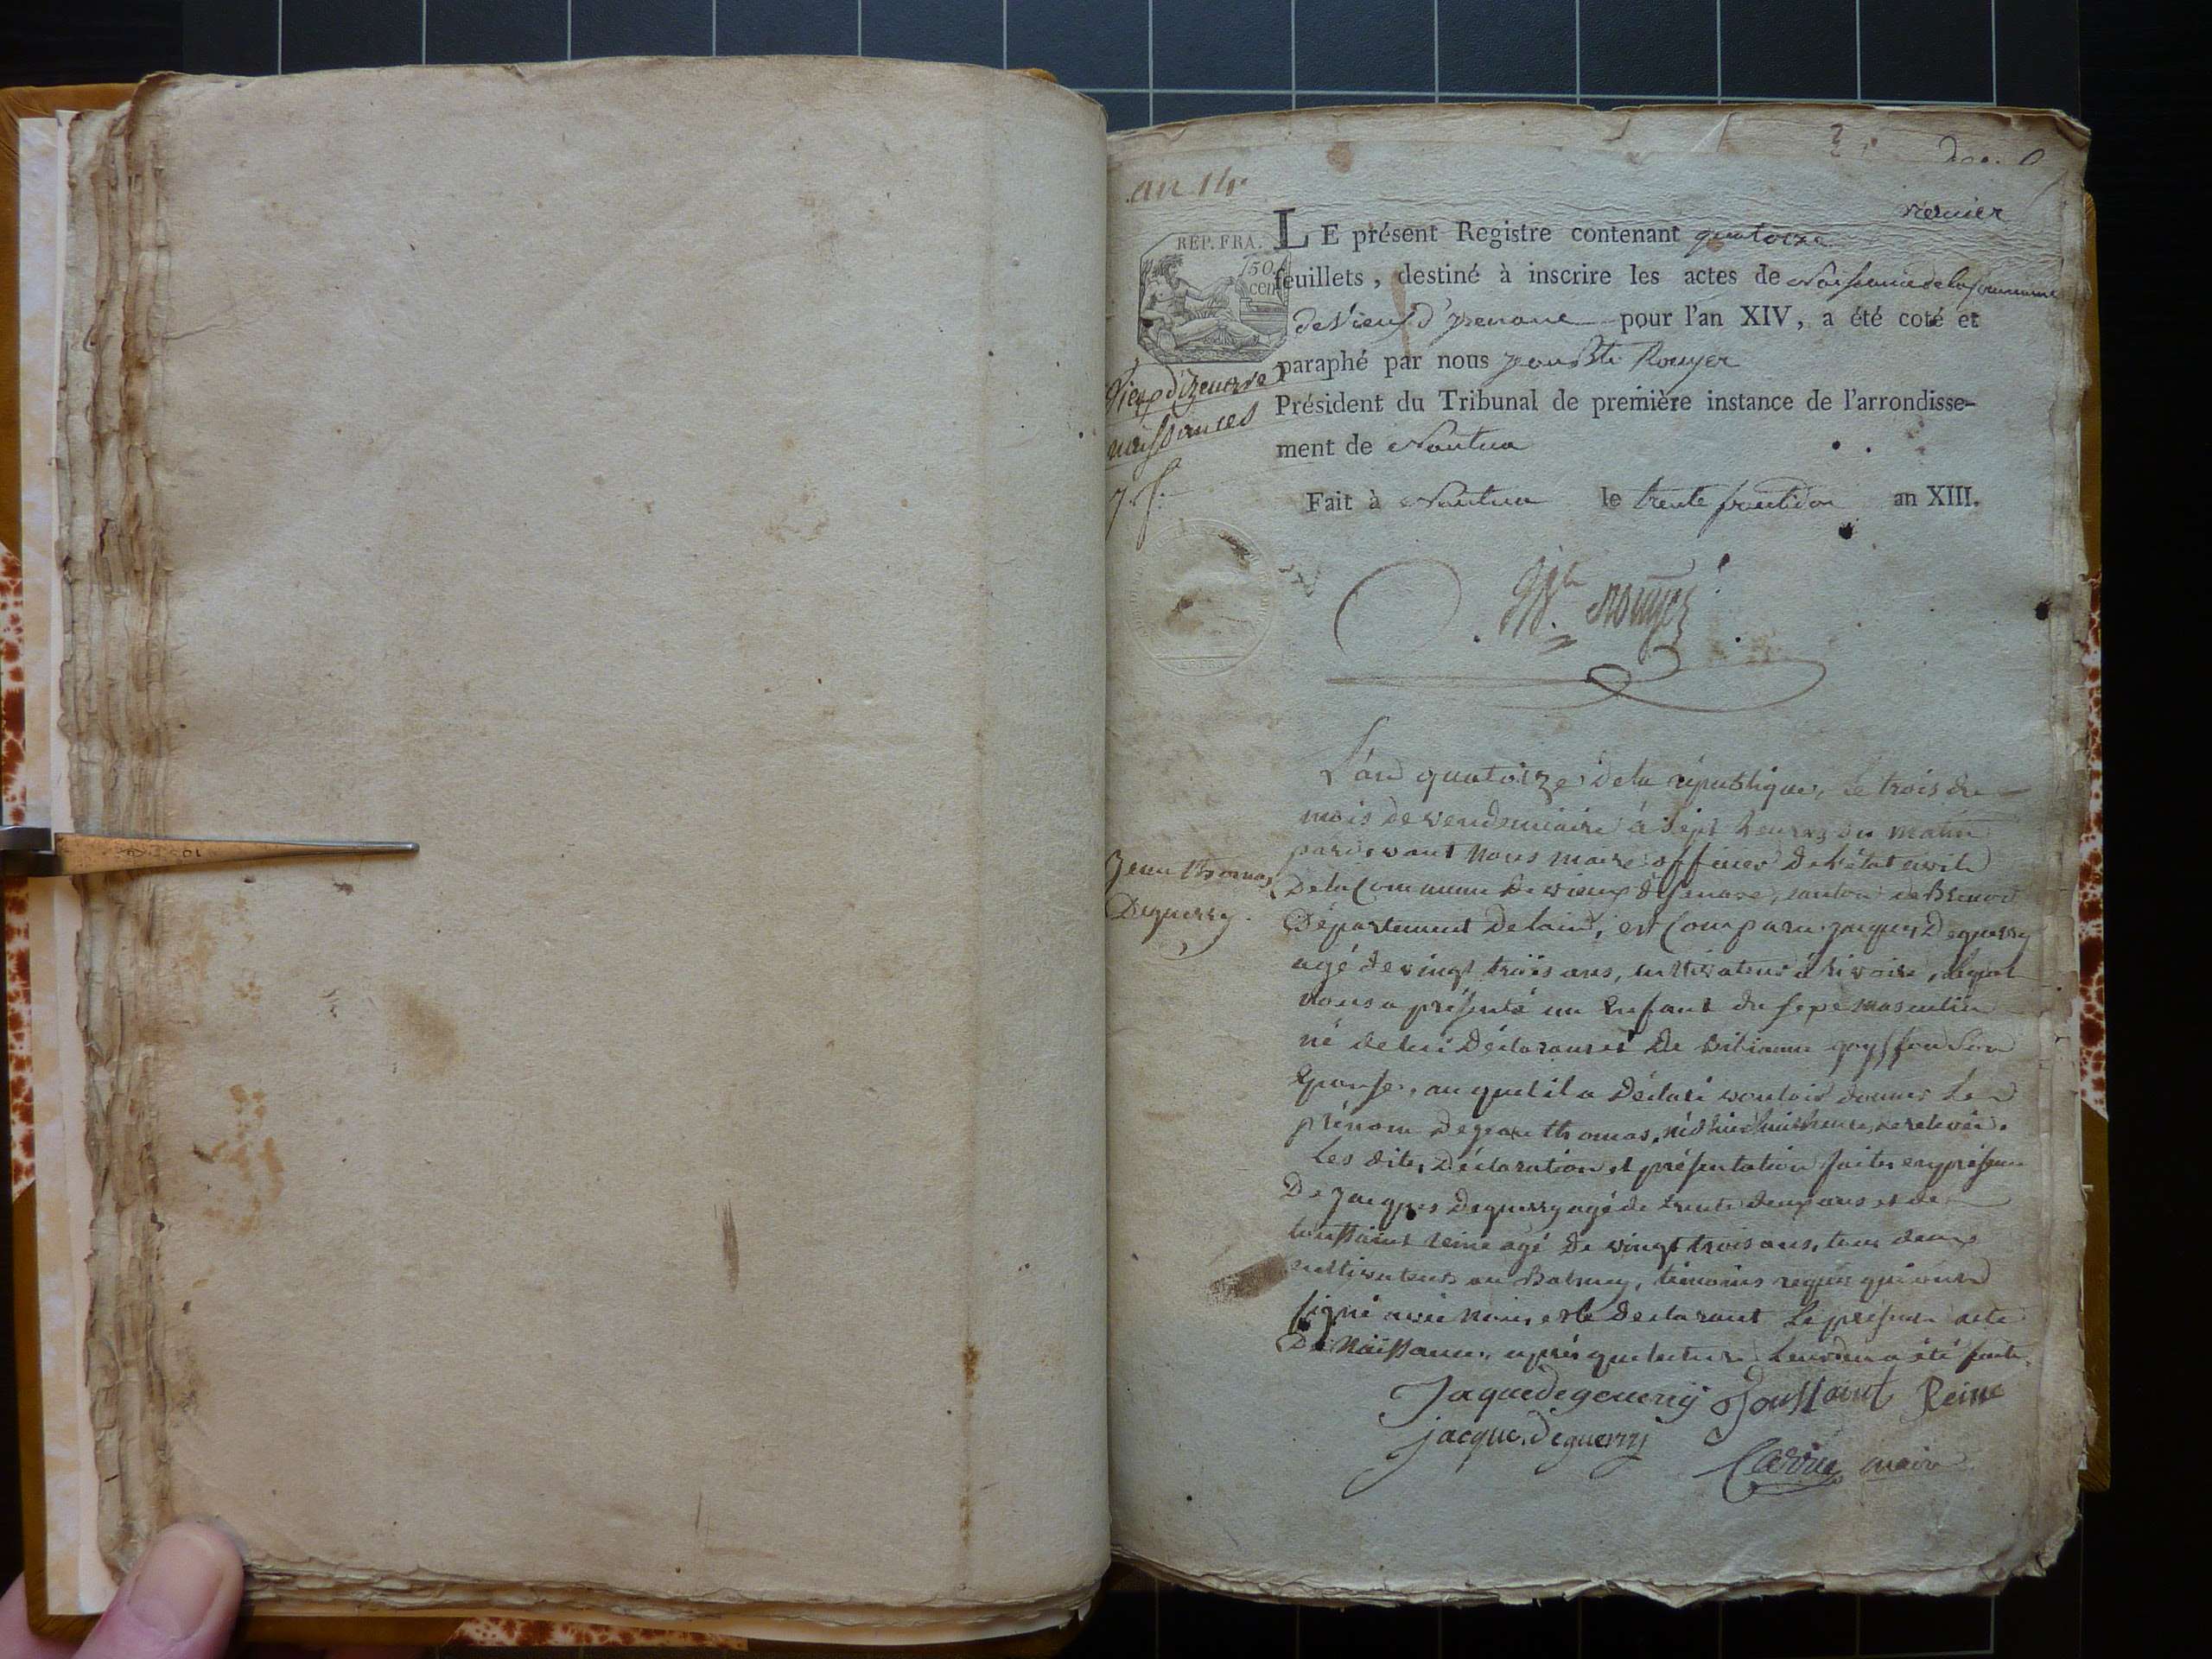 an 14.
premier
REP. FRA.
50 cen
LE présent Registre contenant quatorze
feuillets, destiné à inscrire les actes de Naissance de la Commune
de Vieux d'Izenave pour l'an XIV, a été coté et
paraphé par nous Jean Bte Rouyer
Président du Tribunal de première instance de l'arrondisse-
ment de Nantua
Fait à Nantua le trente fructidor an XIII.
Vieux d'Izenave
naissances
7. f.
Rouyer
Jean Thomas
Deguerry.
L'an quatorze de la république, le trois du
mois de vendemiaire à sept heures du matin
pardevant nous maire officier de l'état civile
De la Commune de vieux d'isenave, canton de Brenod
Département de lain, est Comparu jacques Deguerry
agé de vingt trois ans, cultivateur à rivoire, lequel
nous a présenté un Enfant du sexe masculin
né de lui Déclarant et De
Epouse, au quel il a Déclaré vouloir donner le
prénom de jean thomas, né d'hier huit heures de relevée.
Les dites Déclaration et présentation faites en présence
De jacques Deguerry agé de trente deux ans et de
toussaint reine agé De vingt trois ans, tous deux
cultivateurs au Balmay, témoins requis qui ont
signé avec nous et le déclarant le présent acte
De Naissance, après que lecture leur en a été faite.
Jaque degeuerriy Toussaint Reine
jacque deguerry
maire